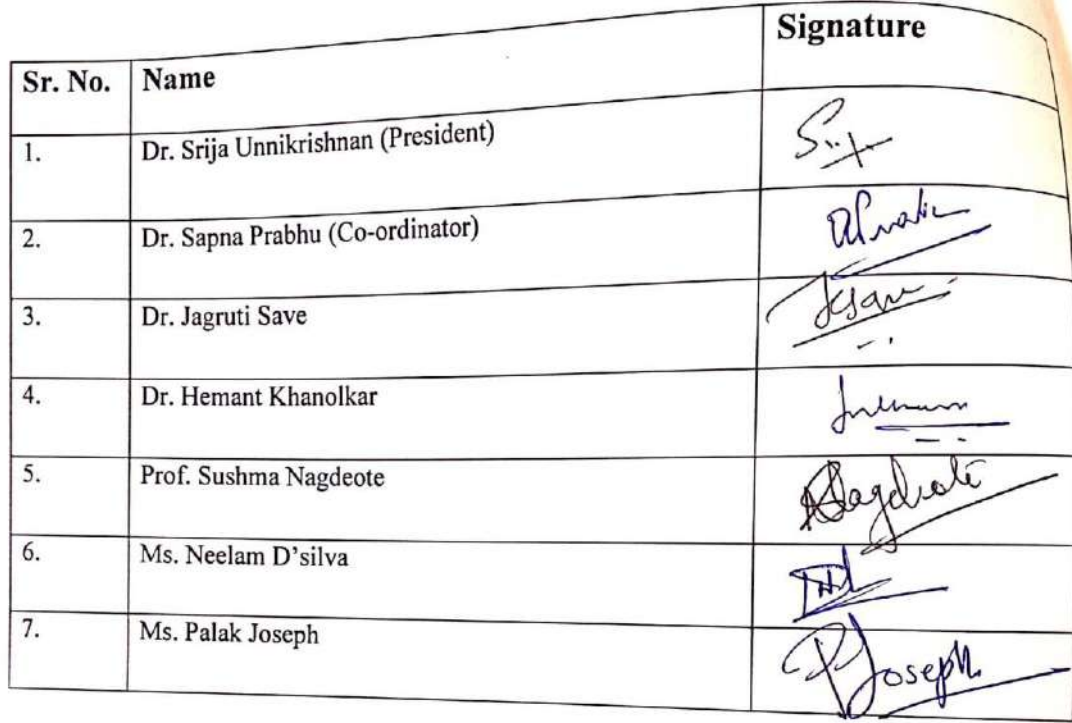 Sr. No. Name Signature
1. Dr. Srija Unnikrishnan (President)
2. Dr. Sapna Prabhu (Co-ordinator)
3. Dr. Jagruti Save
4. Dr. Hemant Khanolkar
5. Prof. Sushma Nagdeote
6. Ms. Neelam D'silva
7. Ms. Palak Joseph PJoseph.